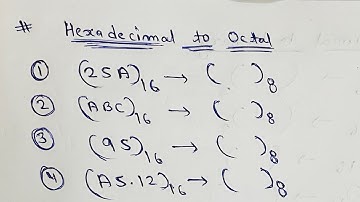 # Hexadecimal to Octal
① (25A)₁₆ → ( )₈
② (ABC)₁₆ → ( )₈
③ (95)₁₆ → ( )₈
④ (A5.12)₁₆ → ( )₈